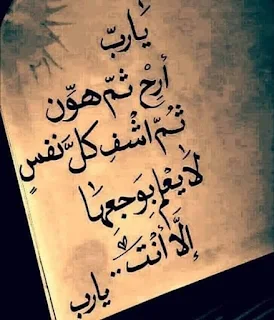 ياربّ
أرِحْ ثمّ هوّن
ثُمّ اشْفِ كلَّ نفسٍ
لا يعلم بوجعها
إلّا أنت.. يارب